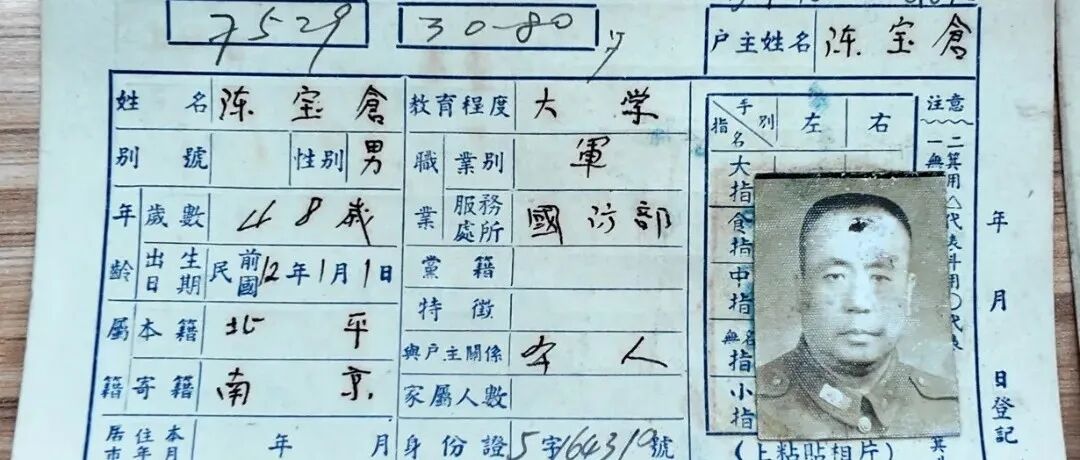 7529
30-80
户主姓名 陈宝倉
姓名 陈宝倉
教育程度 大学
別號
性別 男
職業 業別 軍
年齡 歲數 48歲
服務處所 國防部
出生日期 民國前12年1月1日
黨籍
特徵
屬籍 本籍 北平
與戶主關係 本人
寄籍 南京
家屬人數
居住本市年月 年 月
身份證 5字164319號
手別 指名 左 右
大指
食指
中指
無名指
小指
(上粘貼相片)
注意
一無
二箕用△代表斗用○代表
年 月 日登記